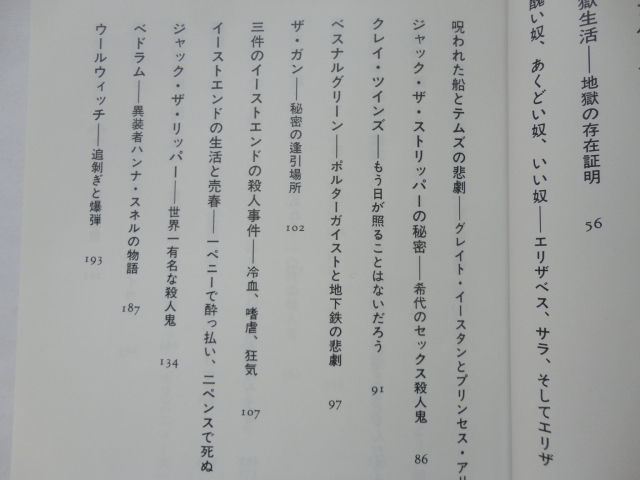 獄生活――地獄の存在証明 56
醜い奴、あくどい奴、いい奴――エリザベス、サラ、そしてエリザ
呪われた船とテムズの悲劇――グレイト・イースタンとプリンセス・アリ
ジャック・ザ・ストリッパーの秘密――希代のセックス殺人鬼 86
クレイ・ツインズ――もう日が照ることはないだろう 91
ベスナルグリーン――ポルターガイストと地下鉄の悲劇 97
ザ・ガン――秘密の逢引場所 102
三件のイーストエンドの殺人事件――冷血、嗜虐、狂気 107
イーストエンドの生活と売春――一ペニーで酔っ払い、二ペンスで死ぬ
ジャック・ザ・リッパー――世界一有名な殺人鬼 134
ベドラム――異装者ハンナ・スネルの物語 187
ウールウィッチ――追剝ぎと爆弾 193